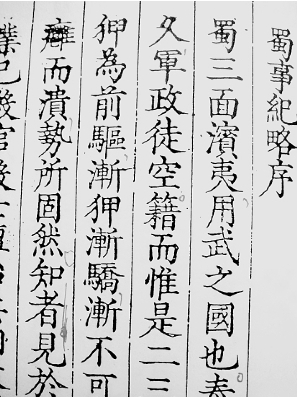 蜀事紀略序
蜀三面濱夷用武之國也
久軍政徒空籍而惟是二三
狎為前驅漸狎漸驕漸不可
而潰勢所固然知者見於